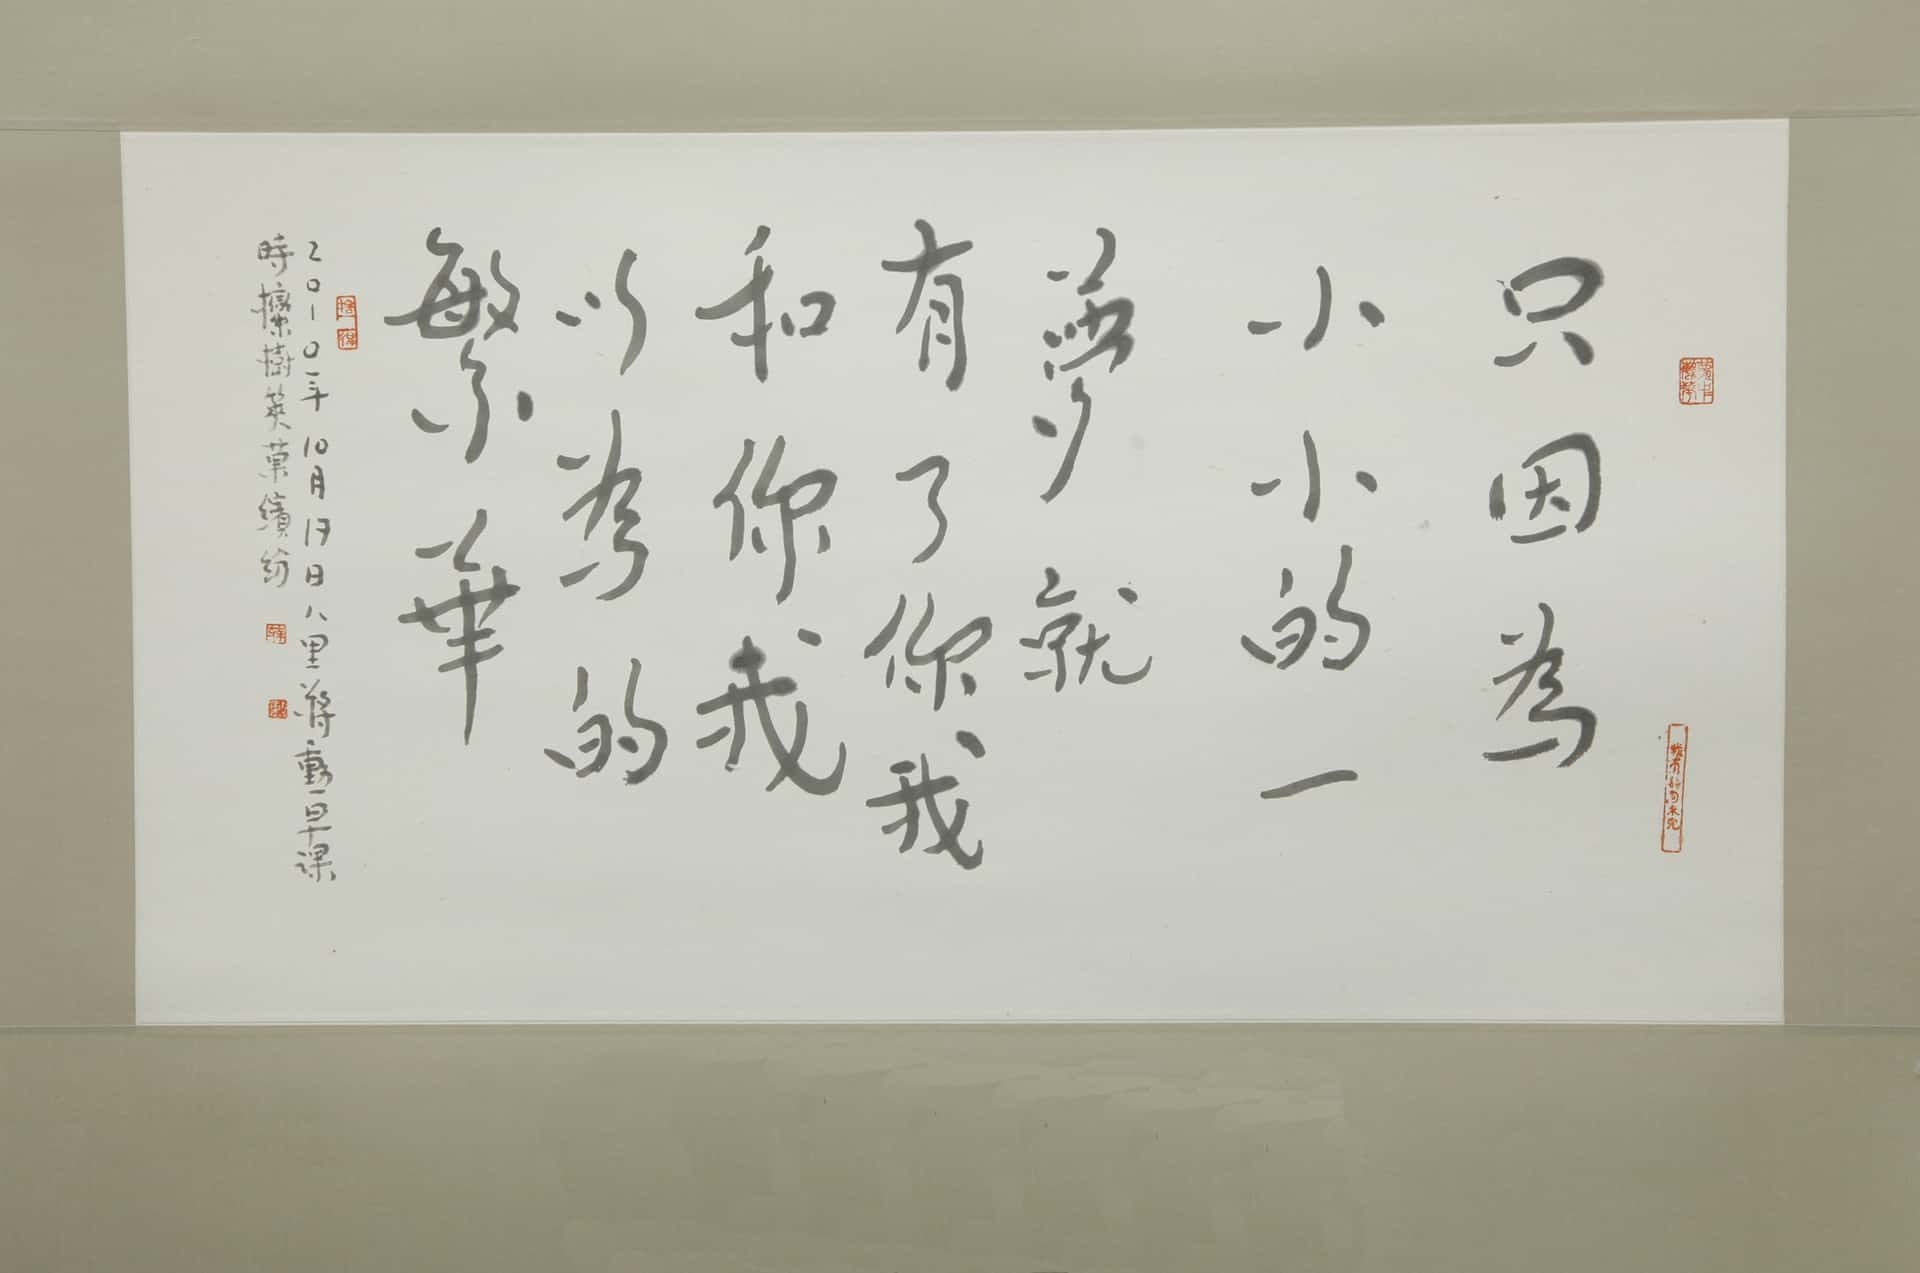 只因為
小小的一
夢就
有了你我
和你我
以為的
繁華
二0一0年10月17日八里蔣勳早課
時欒樹莢菓繽紛
捨得